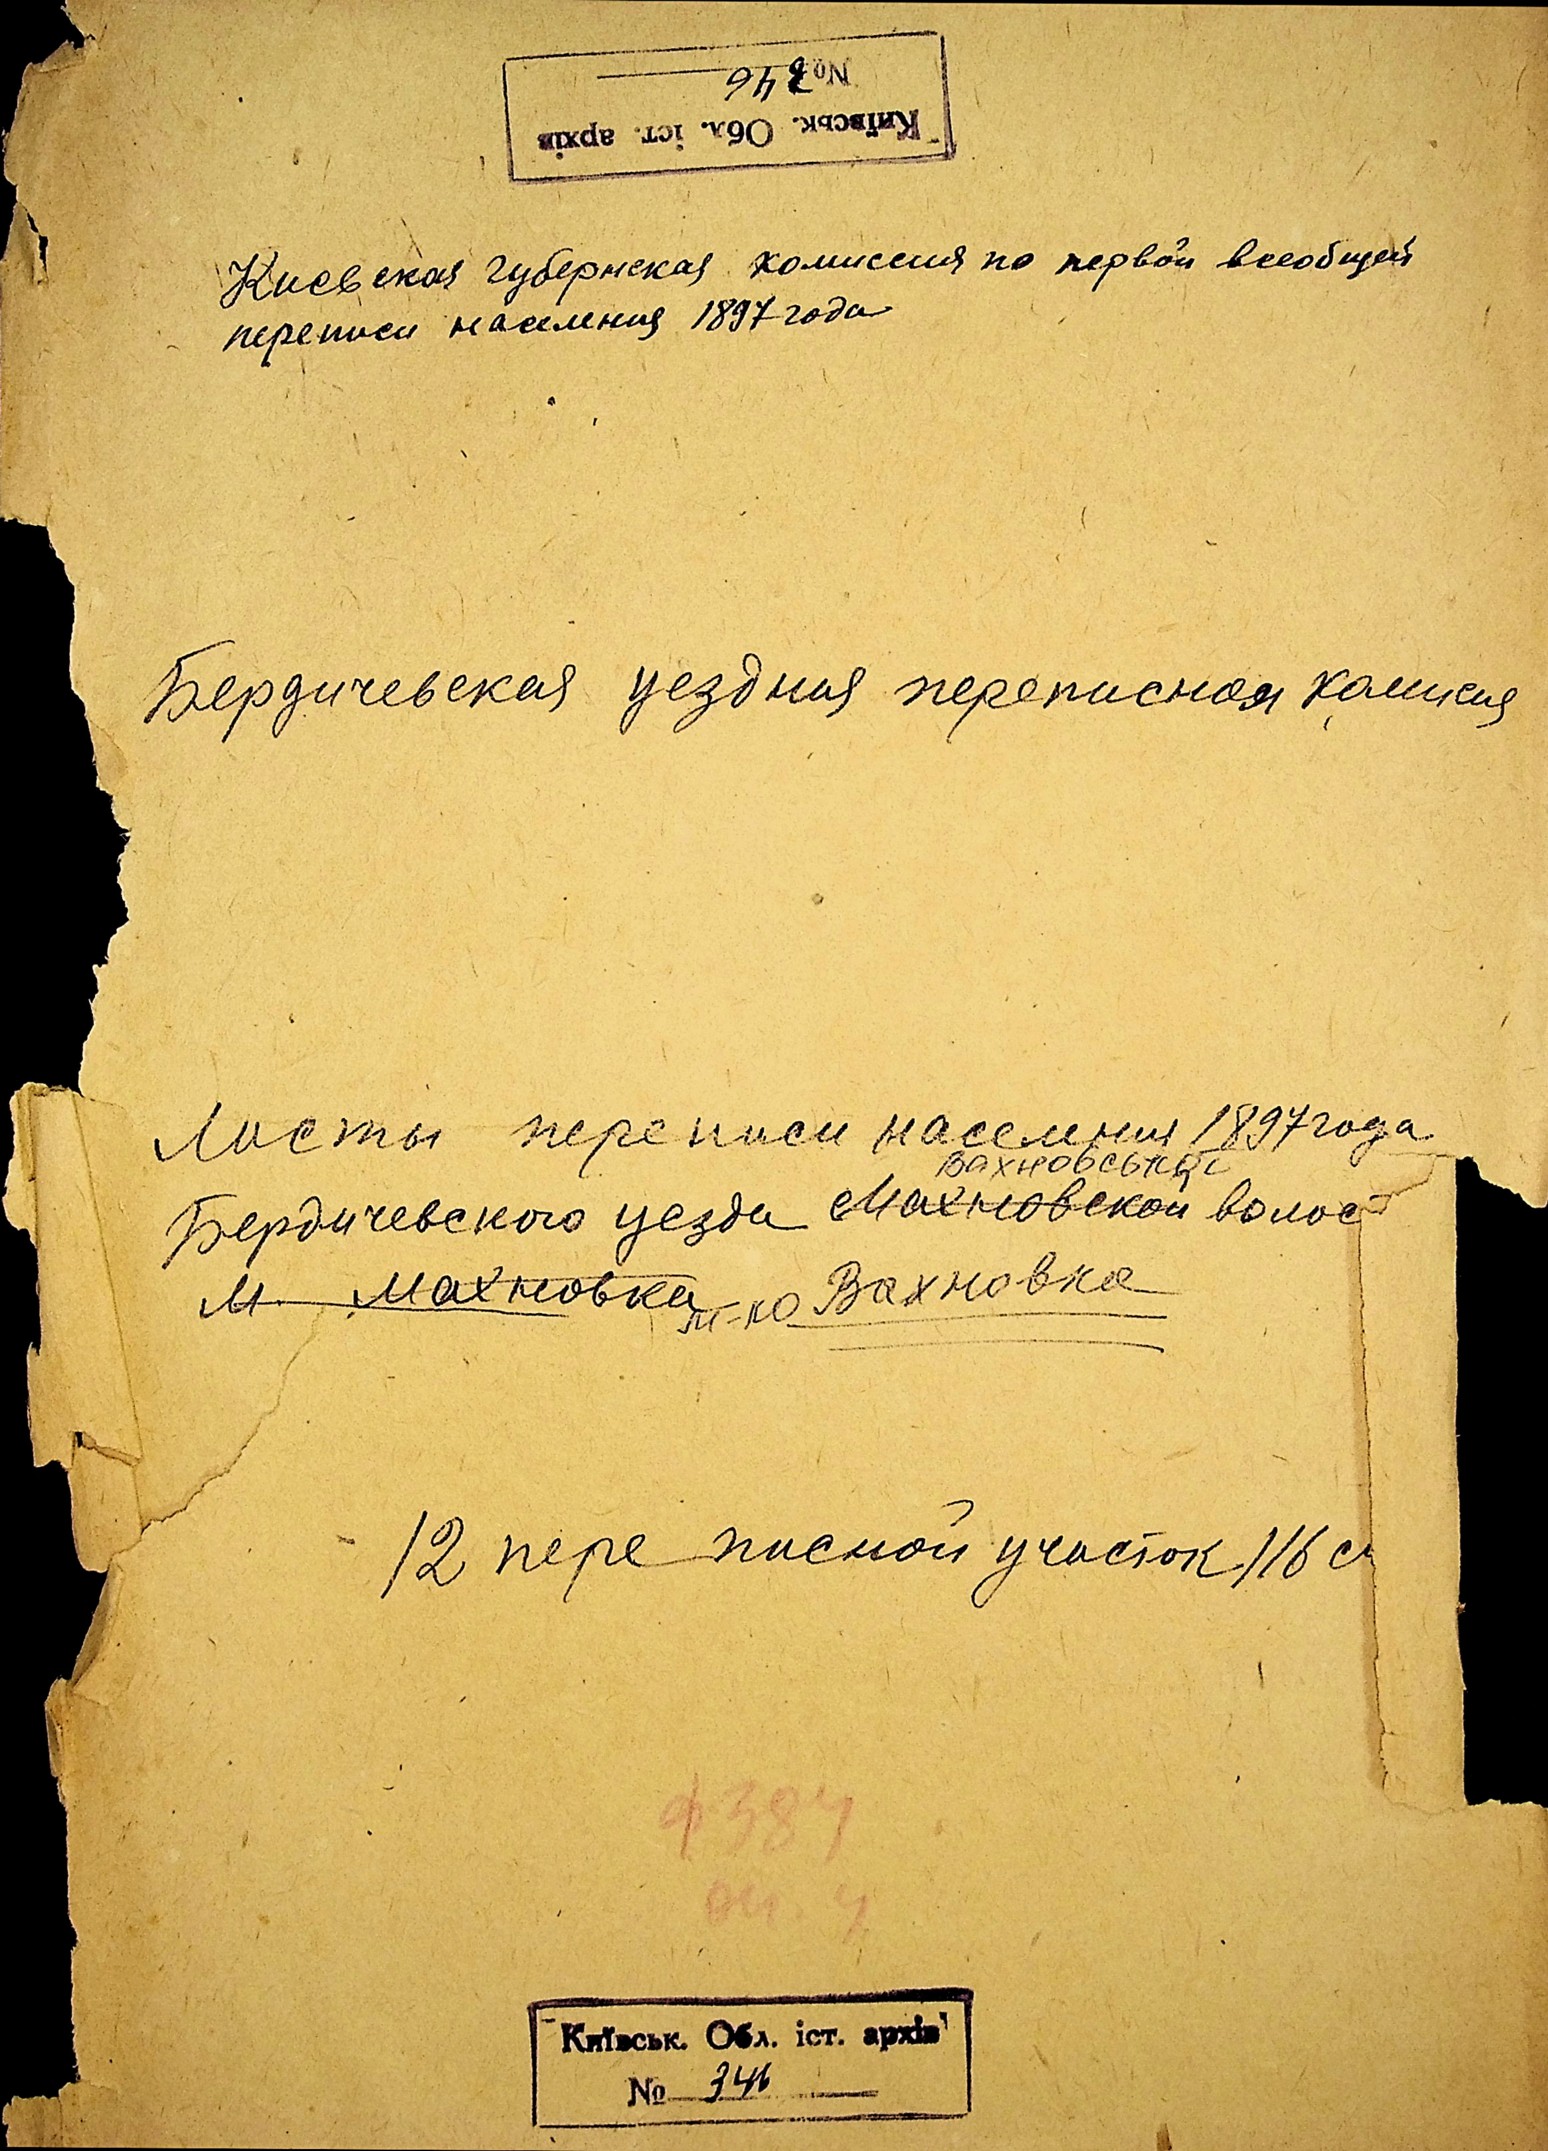 Київськ. Обл. іст. архів
№ 346
Киевская губернская комиссия по первой всеобщей
переписи населения 1897 года
Бердичевская уездная переписная комисия
Листы переписи населения 1897 года
Вахновської
Бердичевского уезда Махновской волост
м. Махновка м-ко Вахновка
12 переписной участок 116 с
ф 384
оп. 4
Київськ. Обл. іст. архів
№ 346